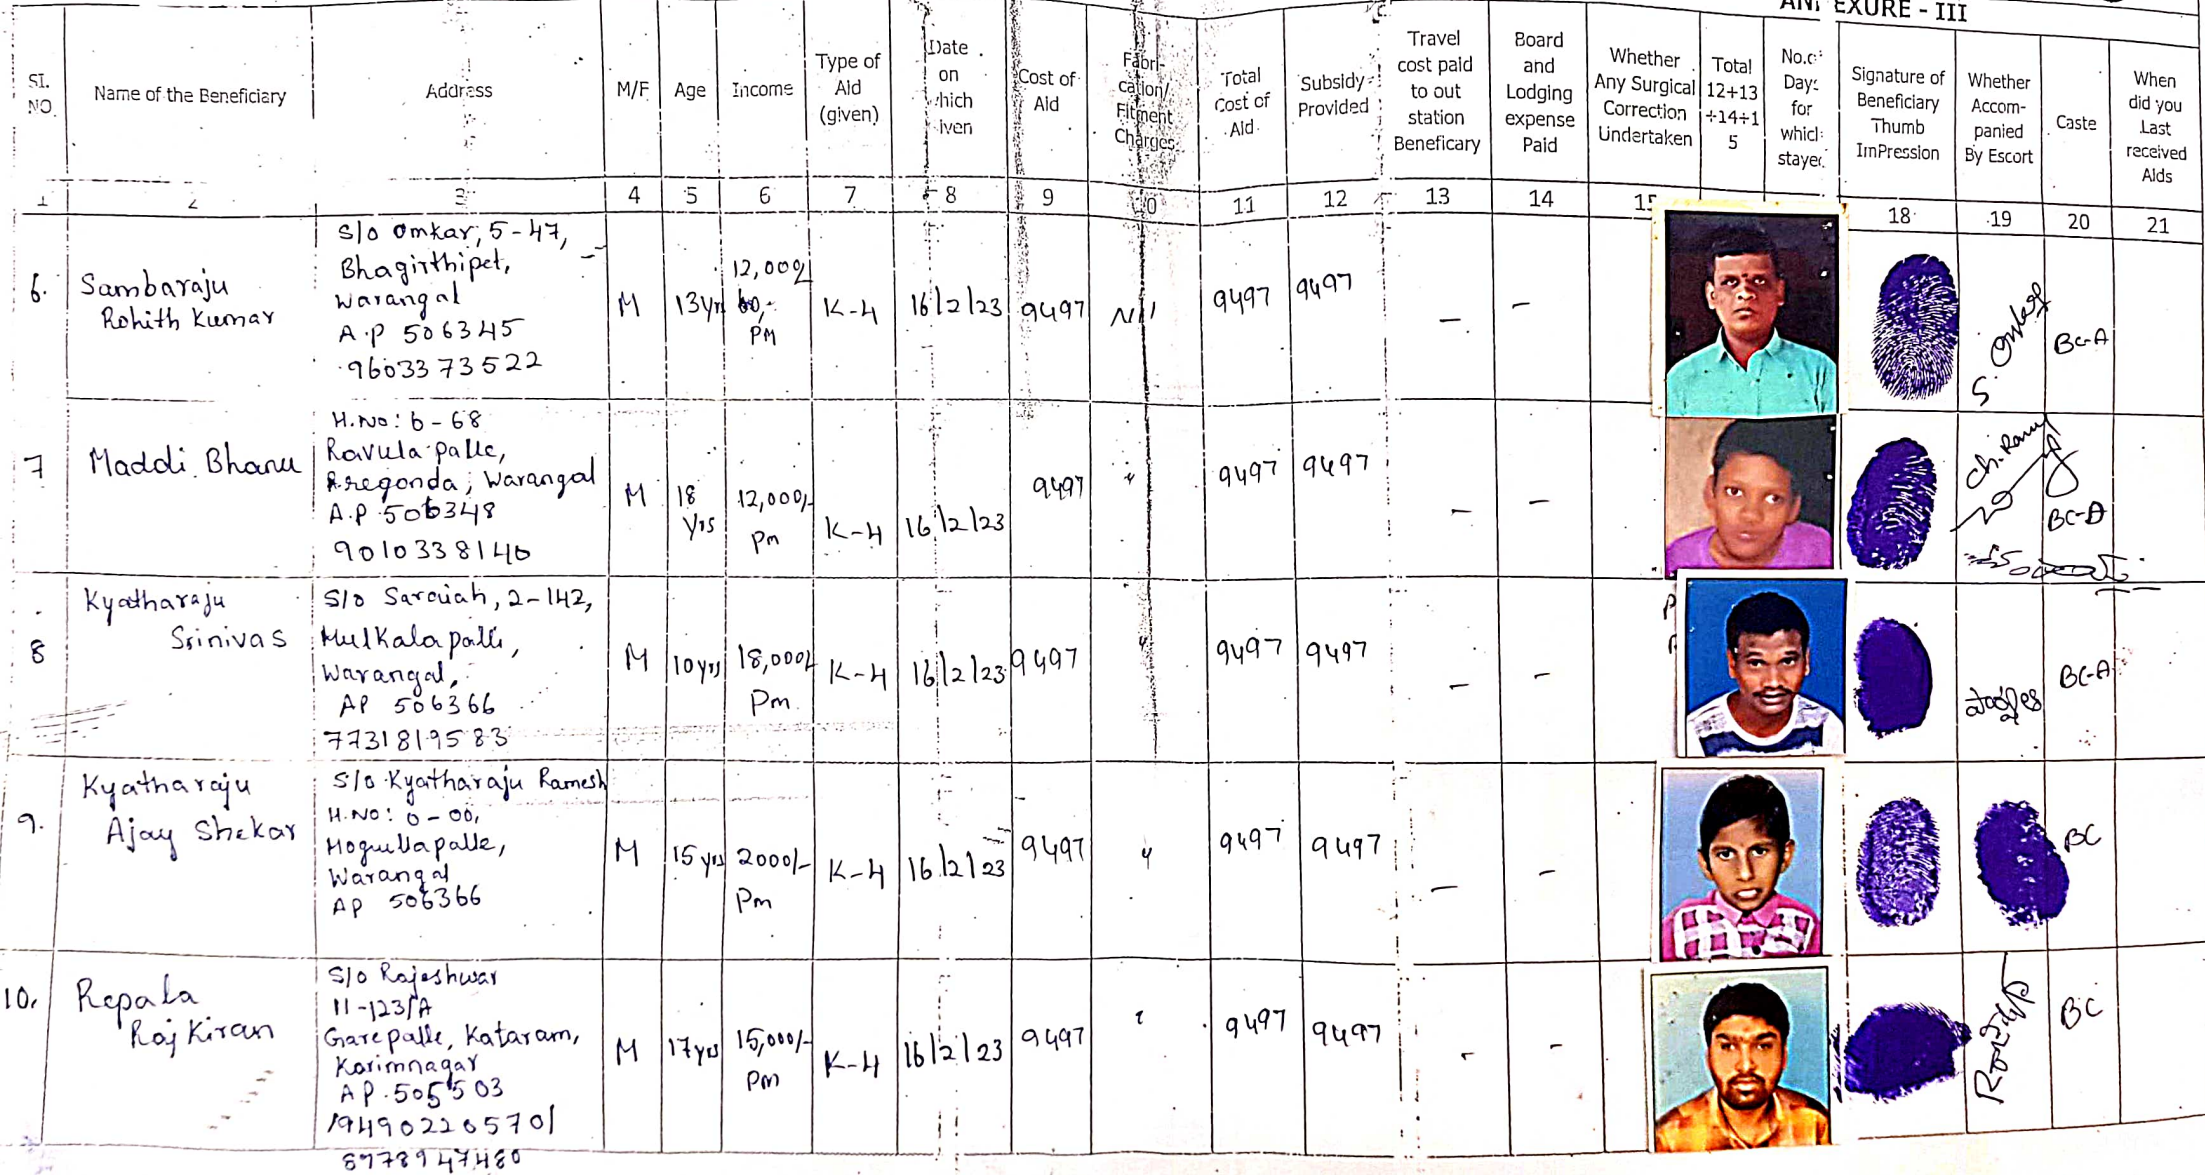 ANNEXURE - III
SI. NO.
Name of the Beneficiary
Address
M/F
Age
Income
Type of
Aid
(given)
Date
on
which
iven
Cost of
Aid
Fabri-
cation/
Fitment
Charges
Total
Cost of
Aid
Subsidy
Provided
Travel
cost paid
to out
station
Beneficary
Board
and
Lodging
expense
Paid
Whether
Any Surgical
Correction
Undertaken
Total
12+13
+14+1
5
No.of
Days
for
which
stayed
Signature of
Beneficiary
Thumb
ImPression
Whether
Accom-
panied
By Escort
Caste
When
did you
Last
received
Aids
1 2 3 4 5 6 7 8 9 10 11 12 13 14 15 18 19 20 21
6.
Sambaraju
Rohith Kumar
S/o Omkar, 5-47,
Bhagirthipet,
Warangal
A.P 506345
9603373522
M
13yrs
12,000/
PM
K-4
16/2/23
9497
Nil
9497
9497
-
-
BC-A
7
Maddi Bhanu
H.No: 6-68
Ravula palle,
Regonda, Warangal
A.P 506348
9010338140
M
18
yrs
12,000/-
Pm
K-4
16/2/23
9497
"
9497
9497
-
-
BC-A
8
Kyatharaju
Srinivas
S/o Saraiah, 2-142,
Mulkalapalli,
Warangal,
AP 506366
7731819583
M
10yrs
18,000/
Pm
K-4
16/2/23
9497
"
9497
9497
-
-
BC-A
9.
Kyatharaju
Ajay Shekar
S/o Kyatharaju Ramesh
H.No: 0-00,
Mogullapalle,
Warangal
AP 506366
M
15 yrs
2000/-
Pm
K-4
16/2/23
9497
"
9497
9497
-
-
BC
10.
Repala
Raj Kiran
S/o Rajeshwar
11-123/A
Garepalle, Kataram,
Karimnagar
AP.505503
M
17yrs
15,000/-
Pm
K-4
16/2/23
9497
9497
9497
-
-
BC
8978947480